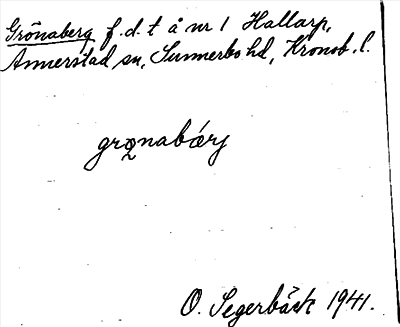 Grönaberg f.d. t å nr 1 Hallarp,
Annerstad sn, Sunnerbo hd, Kronob. l.
grǫnabærj
O. Segerbäck 1941.